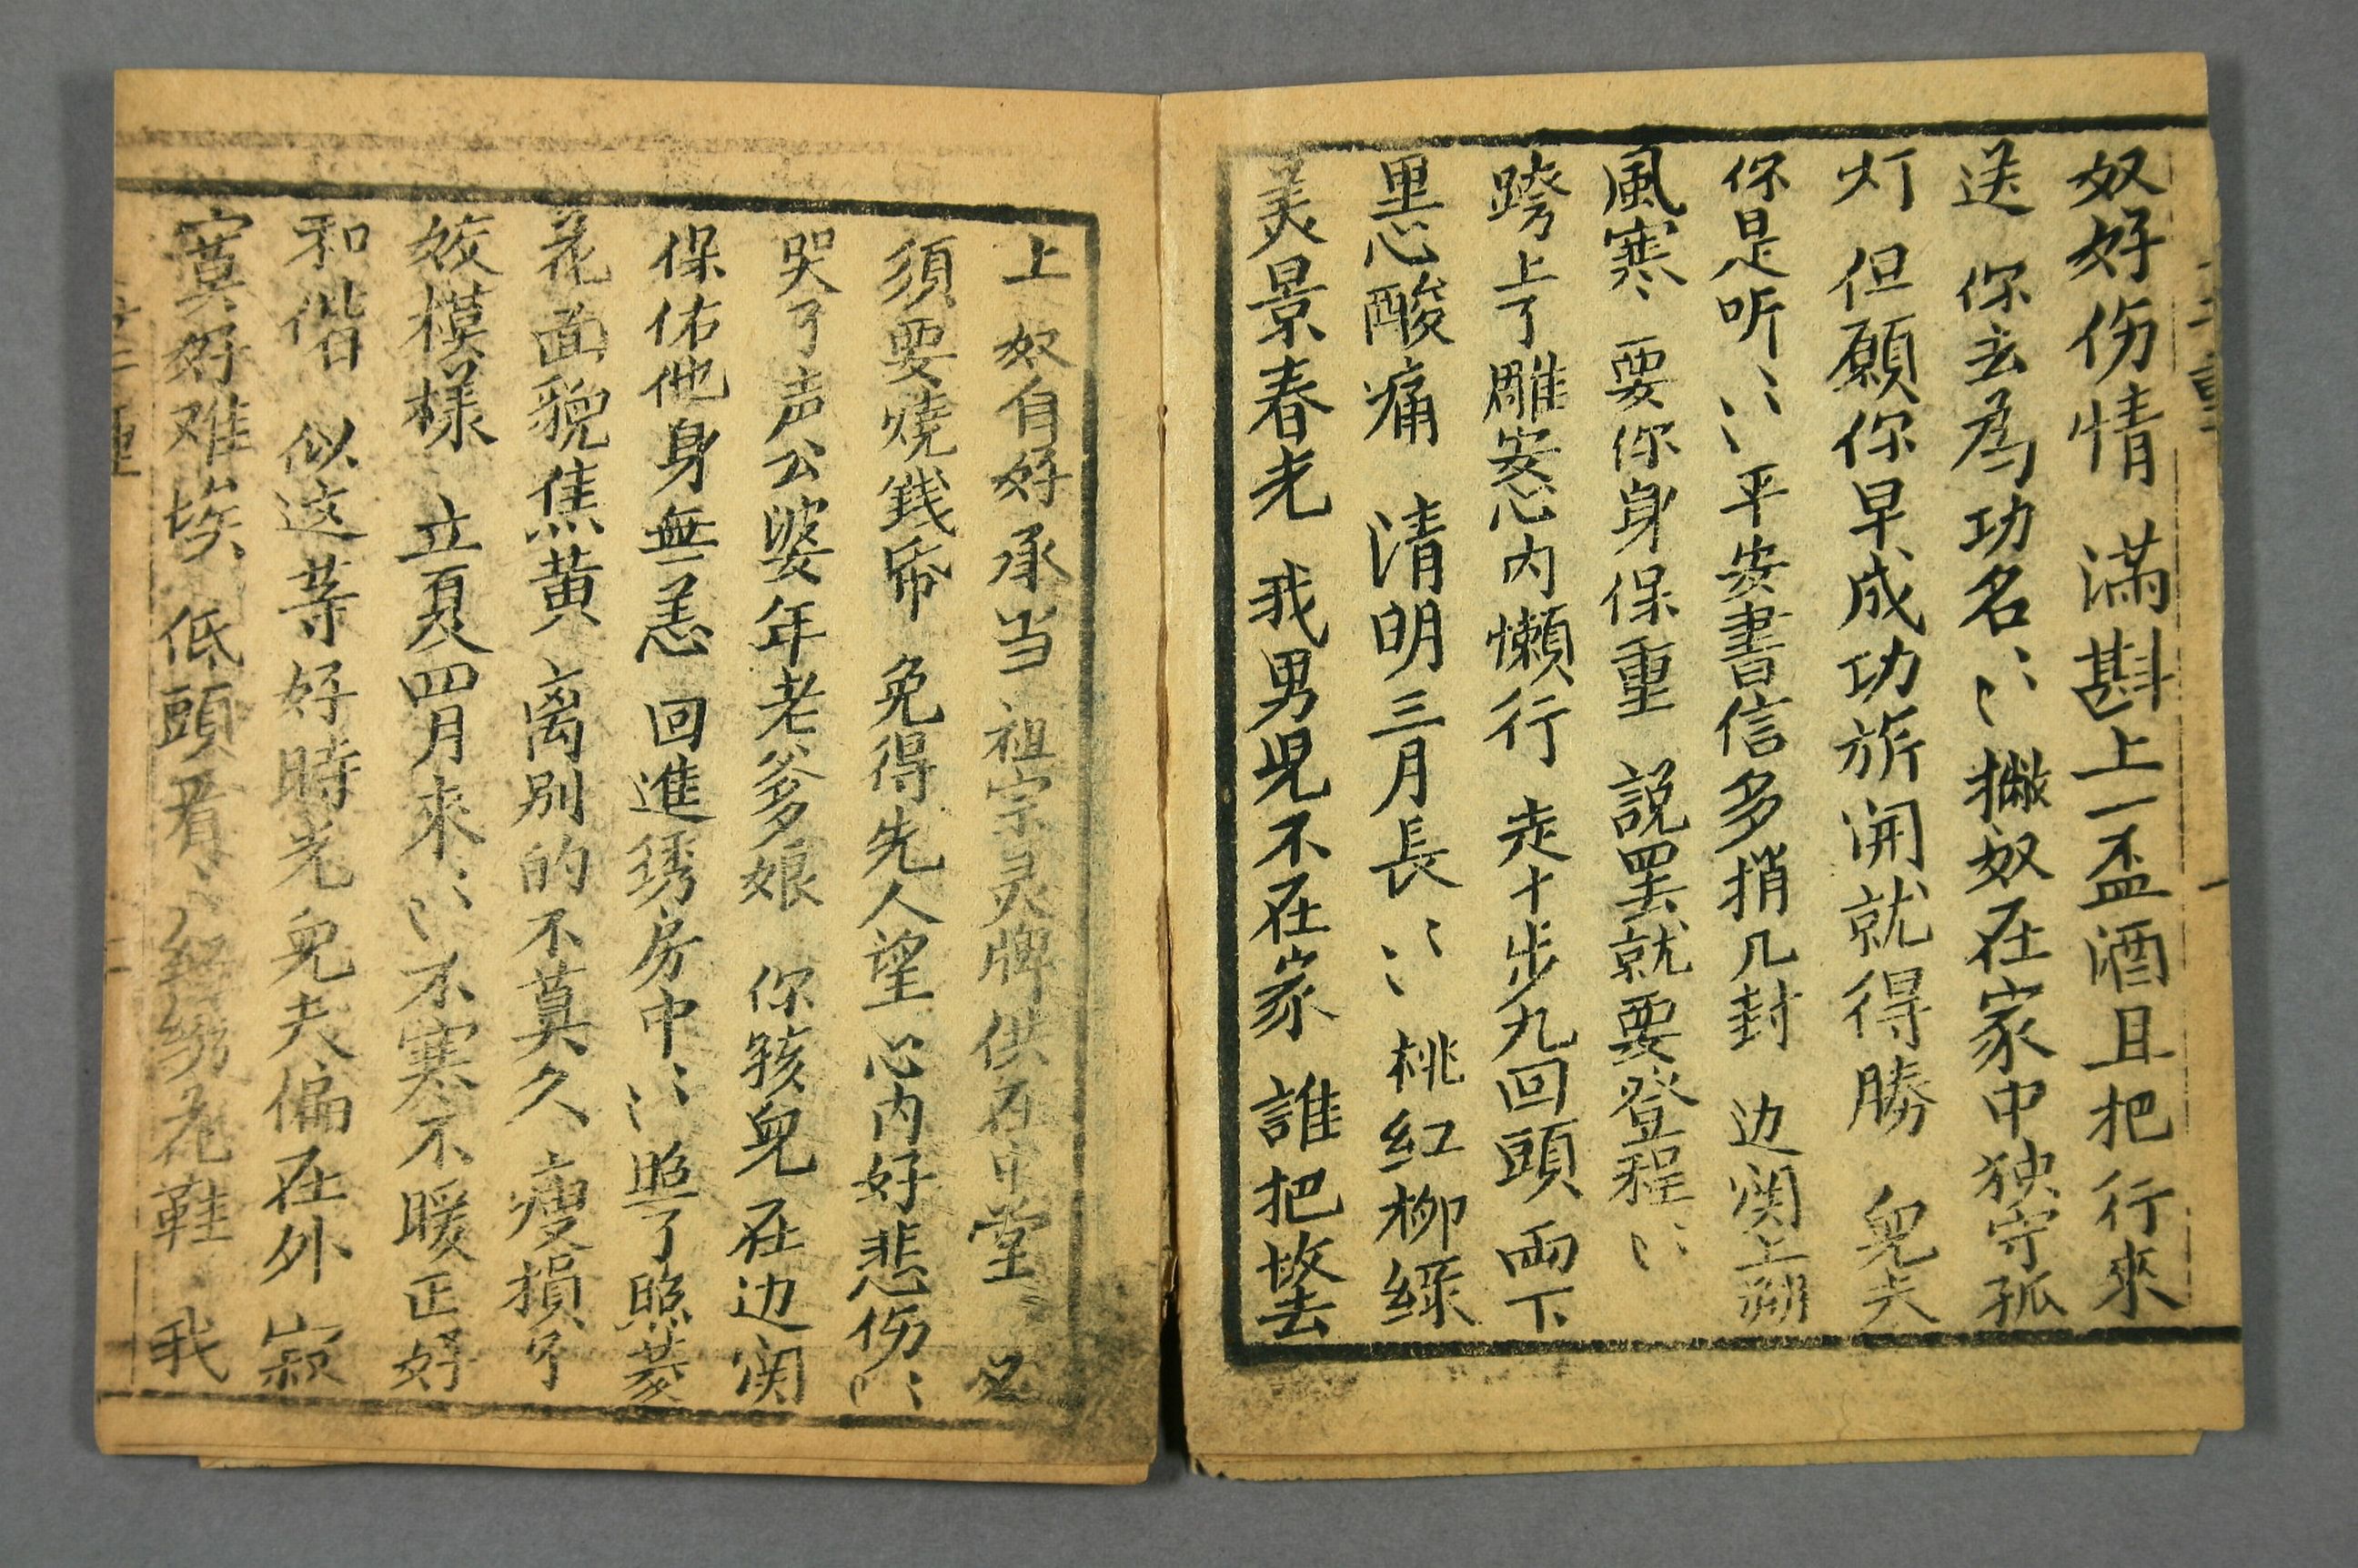 奴好伤情 满斟上一盃酒且把行來
送 你去為功名〻〻撇奴在家中独守孤
灯 但願你早成功 旂開就得勝 皃夫
你是听〻〻平安書信多捎几封 边関上朔
風寒 要你身保重 説罢就要登程〻〻
跨上了雕安心内懒行 走十步九回頭 両下
里心酸痛 清明三月長〻〻桃红柳綠
美景春光 我男児不在家 誰把坟去
上 奴自好承当 祖宗灵牌供在中堂〻必
須要燒錢帋 免得先人望 心内好悲伤〻〻
哭了声公婆年老爹娘 你孩皃在边関
保佑他身無恙 回進綉房中〻〻照了照菱
花面貌焦黄 离別的不莫久 瘦損了
姣模樣 立夏四月來〻〻不寒不暖正好
和偕 似这等好時光皃夫偏在外 寂
寞好难挨 低頭看〻綉花鞋 我